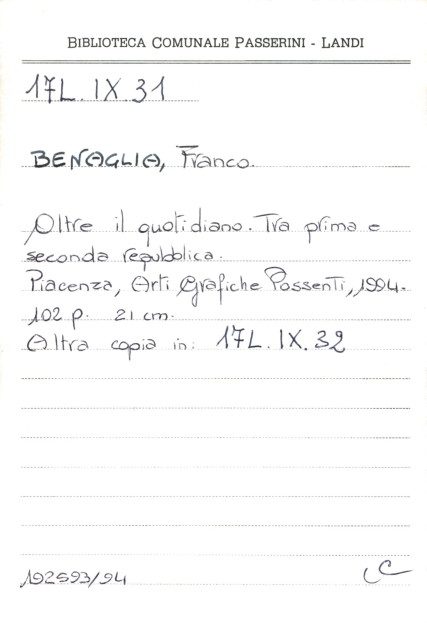 BIBLIOTECA COMUNALE PASSERINI - LANDI
17L.IX.31
BENAGLIA, Franco.
Oltre il quotidiano. Tra prima e
seconda repubblica.
Piacenza, Arti Grafiche Possenti, 1994.
102 p. 21 cm.
Altra copia in: 17L.IX.32
192593/94